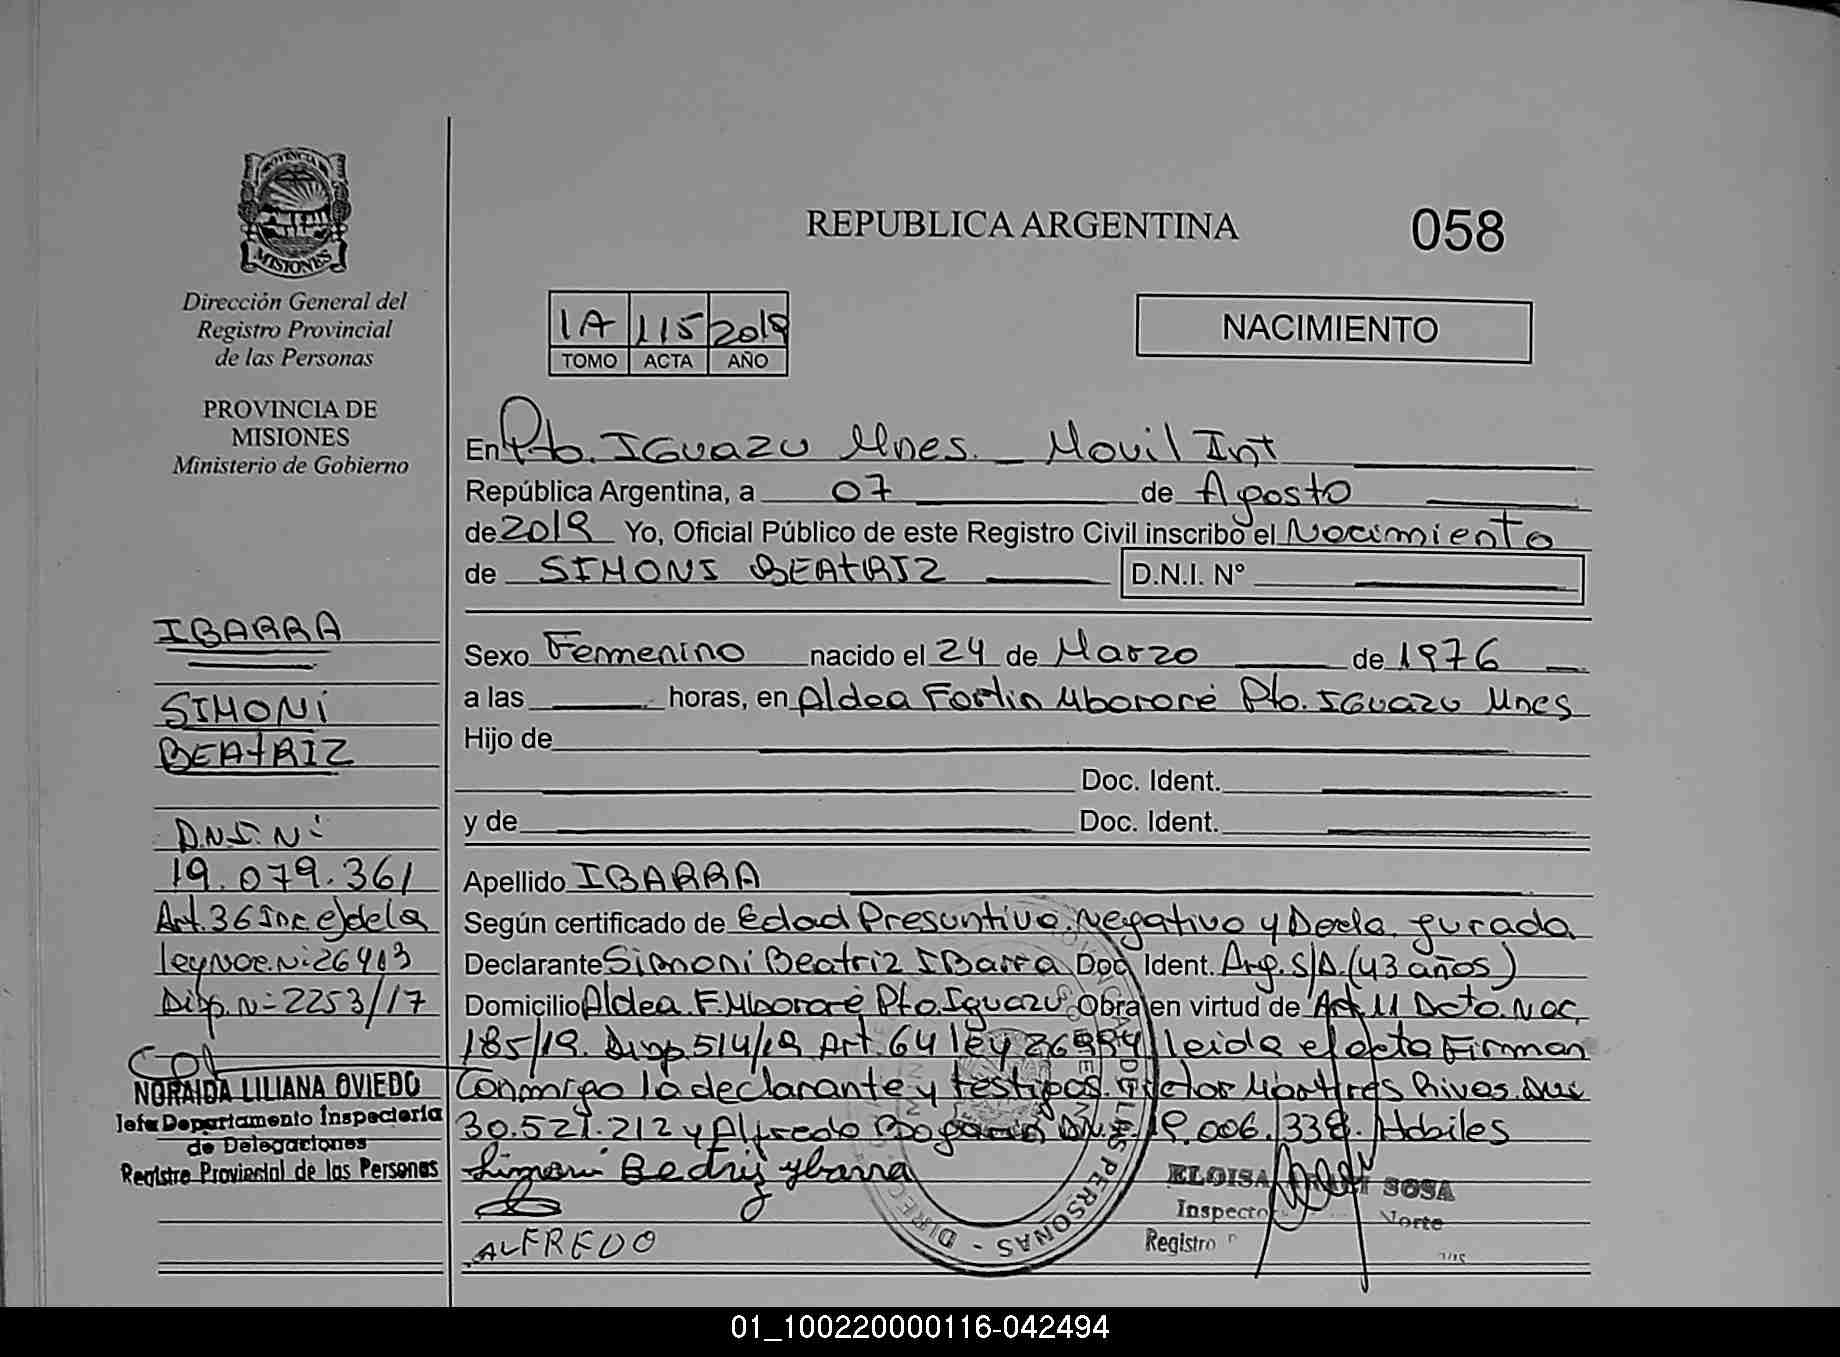 PROVINCIA DE
MISIONES
Dirección General del
Registro Provincial
de las Personas
PROVINCIA DE
MISIONES
Ministerio de Gobierno
IBARRA
SIMONI
BEAtRIZ
D.N.I. Nº
19.079.361
Art. 36 Inc e) de la
ley Nac. Nº 26413
Disp. Nº 2253/17
NORAIDA LILIANA OVIEDO
Jefa Departamento Inspectoría
de Delegaciones
Registro Provincial de las Personas
REPUBLICA ARGENTINA
058
1A 115 2019
TOMO ACTA AÑO
NACIMIENTO
En Pto. IGuazu Mnes. _ Movil Int
República Argentina, a 07 de Agosto
de 2019 Yo, Oficial Público de este Registro Civil inscribo el Nacimiento
de SIMONI BEAtRIZ D.N.I. N°
Sexo Femenino nacido el 24 de Marzo de 1976
a las horas, en Aldea Fortin Mbororé Pto. IGuazu Mnes
Hijo de
Doc. Ident.
y de Doc. Ident.
Apellido IBARRA
Según certificado de Edad Presuntiva, Negativo y Decla. Jurada
Declarante Simoni Beatriz IBarra Doc. Ident. Arg. S/D. (43 años)
Domicilio Aldea. F. Mbororé Pto. Iguazu Obra en virtud de Art. 11 Dcto. Nac.
185/19. Disp. 514/19 Art. 64 ley 26994 leida el acta Firman
Conmigo la declarante y testigos. Victor Martires Rivas. DNI
30.521.212 y Alfredo DNI. 19.006.338. Habiles
Simoni Beatriz ybarra
ALFREDO
DIRECC PROVINCIAL DE LAS PERSONAS
ELOISA SOSA
Inspecto Norte
Registro
01_100220000116-042494